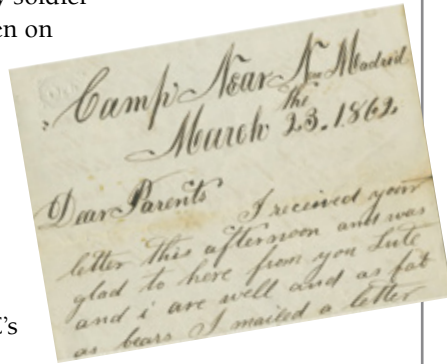 y soldier
en on
Camp Near New Madrid
March the 23. 1862
Dear Parents
I received your
letter this afternoon and was
glad to here from you Lute
and i are well and as fat
as bears I mailed a letter
's